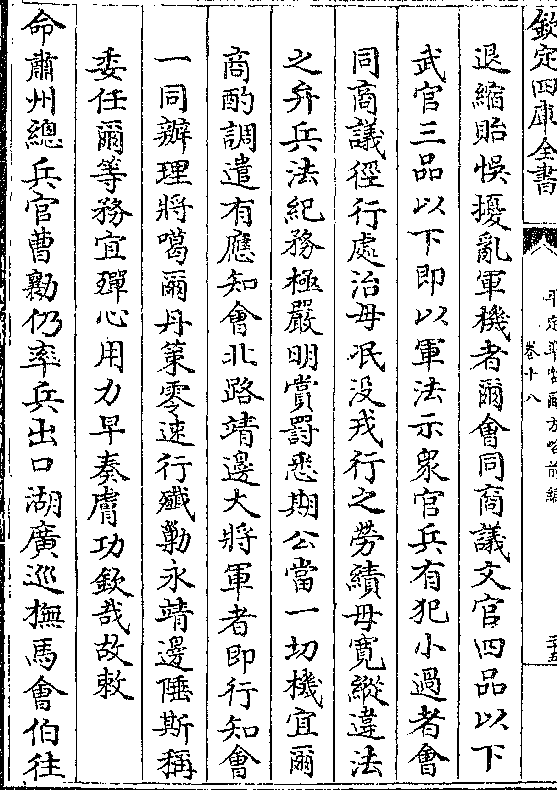 欽定四庫全書
平定準噶爾方略前編
卷十八
退縮貽悞擾亂軍機者爾會同商議文官四品以下
武官三品以下即以軍法示衆官兵有犯小過者會
同商議徑行處治毋泯没戎行之勞績毋寛縱違法
之弁兵法紀務極嚴明賞罰悉期公當一切機宜爾
商酌調遣有應知會北路靖邊大將軍者即行知會
一同辦理將噶爾丹策零速行殱勦永靖邊陲斯稱
委任爾等務宜殫心用力早奏膚功欽哉故敕
命肅州總兵官曹勷仍率兵出口湖廣廵撫馬會伯往